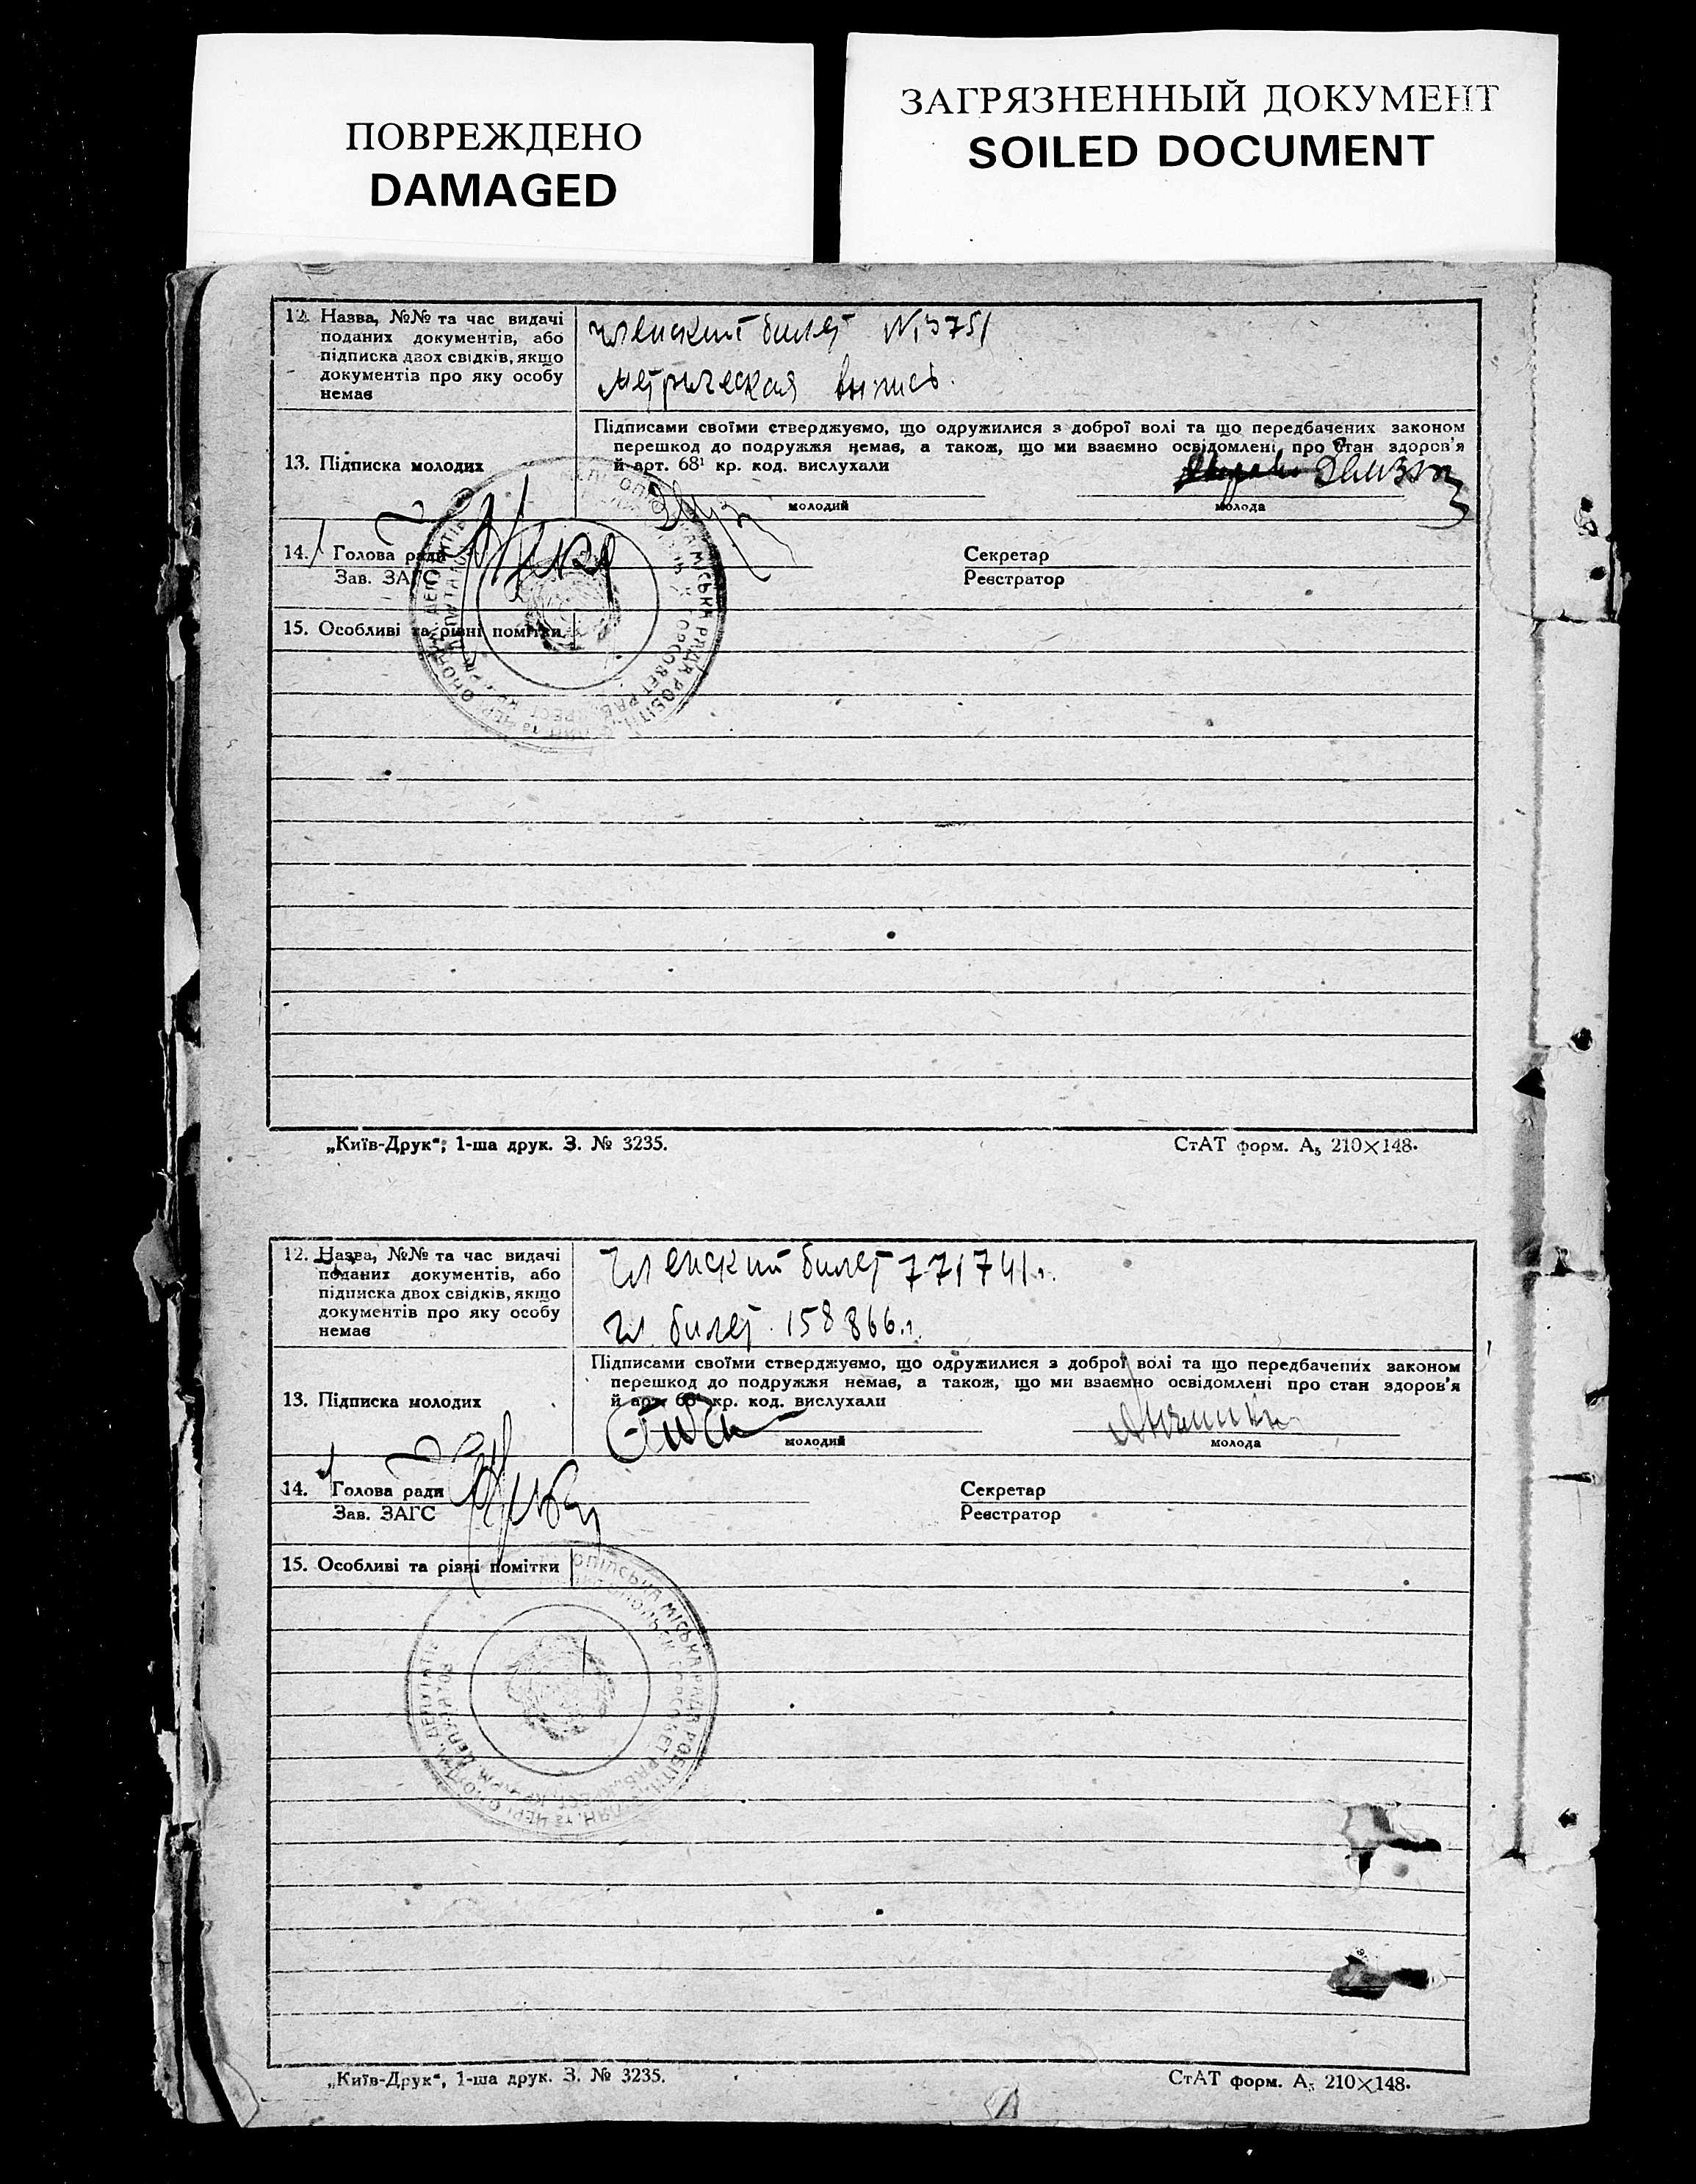 ПОВРЕЖДЕНО
DAMAGED
ЗАГРЯЗНЕННЫЙ ДОКУМЕНТ
SOILED DOCUMENT
12. Назва, №№ та час видачі
поданих документів, або
підписка двох свідків, якщо
документів про яку особу
немає
членский билет №
метрическая выпись.
13. Підписка молодих
Підписами своїми стверджуємо, що одружилися з доброї волі та що передбачених законом
перешкод до подружжя немає, а також, що ми взаємно освідомлені про стан здоров'я
й арт. 68¹ кр. код. вислухали
молодий
молода
14. Голова ради
Зав. ЗАГС
Секретар
Реєстратор
15. Особливі та різні помітки
МІСЬКА РАДА РОБІТН.
„Київ-Друк“; 1-ша друк. З. № 3235.
СтАТ форм. А₅ 210×148.
12. Назва, №№ та час видачі
поданих документів, або
підписка двох свідків, якщо
документів про яку особу
немає
Членский билет 771741
чл билет 158866
13. Підписка молодих
Підписами своїми стверджуємо, що одружилися з доброї волі та що передбачених законом
перешкод до подружжя немає, а також, що ми взаємно освідомлені про стан здоров'я
й арт. 68¹ кр. код. вислухали
молодий
молода
14. Голова ради
Зав. ЗАГС
Секретар
Реєстратор
15. Особливі та різні помітки
МІСЬКА РАДА РОБІТН.
„Київ-Друк“, 1-ша друк. З. № 3235.
СтАТ форм. А₅ 210×148.